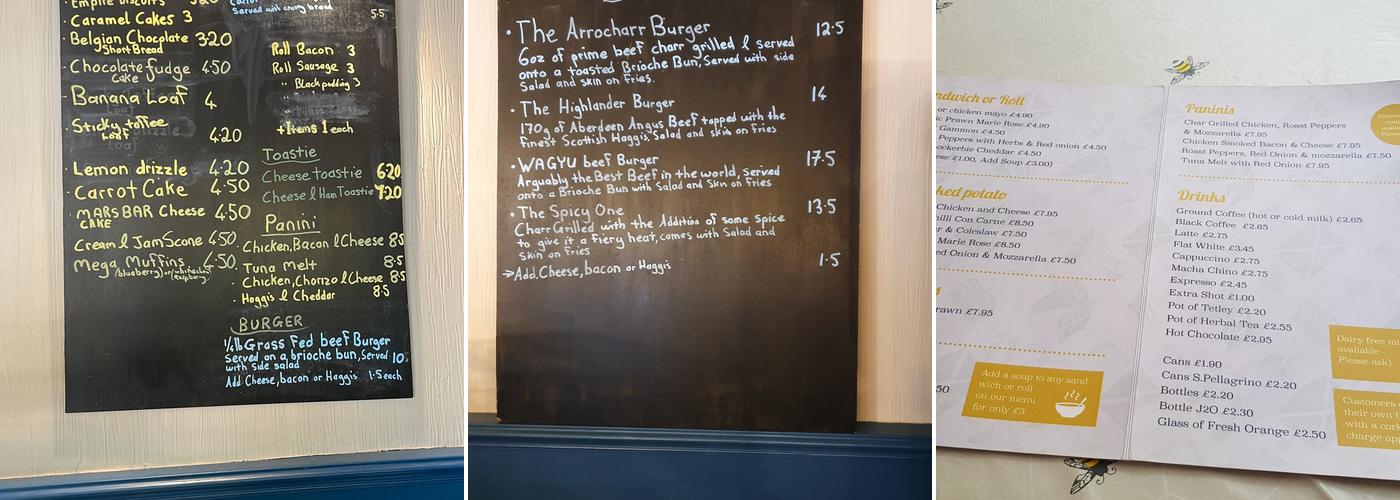 Empire Biscuits
Caramel Cakes 3
Belgian Chocplate 3·20
Short Bread
Chocolate fudge 4·50
Cake
Banana Loaf 4
Sticky toffee
Loaf 4·20
Lemon drizzle 4·20
Carrot Cake 4·50
MARS BAR Cheese 4·50
CAKE
Cream & Jam Scone 4·50
Mega Muffins 4·50
Served with crusty bread
5·5
Roll Bacon 3
Roll Sausage 3
" Black pudding 3
+ Items 1 each
Toastie
Cheese toastie 6·20
Cheese & Ham Toastie 7·20
Panini
Chicken, Bacon & Cheese 8·5
Tuna Melt 8·5
Chicken, Chorizo & Cheese 8·5
Haggis & Cheddar 8·5
BURGER
1/4 lb Grass Fed beef Burger
Served on a brioche bun, Served 10
with side salad
Add Cheese, bacon or Haggis 1·5 each
The Arrocharr Burger 12·5
6oz of prime beef charr grilled & served
onto a toasted Brioche Bun, Served with side
Salad and Skin on Fries.
The Highlander Burger 14
170g of Aberdeen Angus Beef topped with the
Finest Scottish Haggis, Salad and skin on Fries
WAGYU beef Burger 17·5
Arguably the Best Beef in the world, Served
onto a Brioche Bun with Salad and Skin on Fries
The Spicy One 13·5
Charr Grilled with the Addition of some Spice
to give it a fiery heat, comes with Salad and
Skin on Fries
Add Cheese, bacon or Haggis 1·5
ndwich or Roll
or chicken mayo £4.90
c Prawn Marie Rose £4.90
Gammon £4.50
Peppers with Herbs & Red onion £4.50
ockerbie Cheddar £4.50
ese £1.00, Add Soup £3.00)
ked potato
Chicken and Cheese £7.95
illi Con Carne £8.50
r & Coleslaw £7.50
Marie Rose £8.50
ed Onion & Mozzarella £7.50
s
rawn £7.95
50
Add a soup to any sand-
wich or roll
on our menu
for only £3
Paninis
Char Grilled Chicken, Roast Peppers
& Mozzarella £7.95
Chicken Smoked Bacon & Cheese £7.95
Roast Peppers, Red Onion & mozzarella £7.50
Tuna Melt with Red Onion £7.95
Drinks
Ground Coffee (hot or cold milk) £2.65
Black Coffee £2.65
Latte £2.75
Flat White £3.45
Cappuccino £2.75
Macha Chino £2.75
Expresso £2.45
Extra Shot £1.00
Pot of Tetley £2.20
Pot of Herbal Tea £2.55
Hot Chocolate £2.95
Cans £1.90
Cans S.Pellagrino £2.20
Bottles £2.20
Bottle J2O £2.30
Glass of Fresh Orange £2.50
Dairy free mi
available -
Please ask)
Customers
their own b
with a cork
charge app